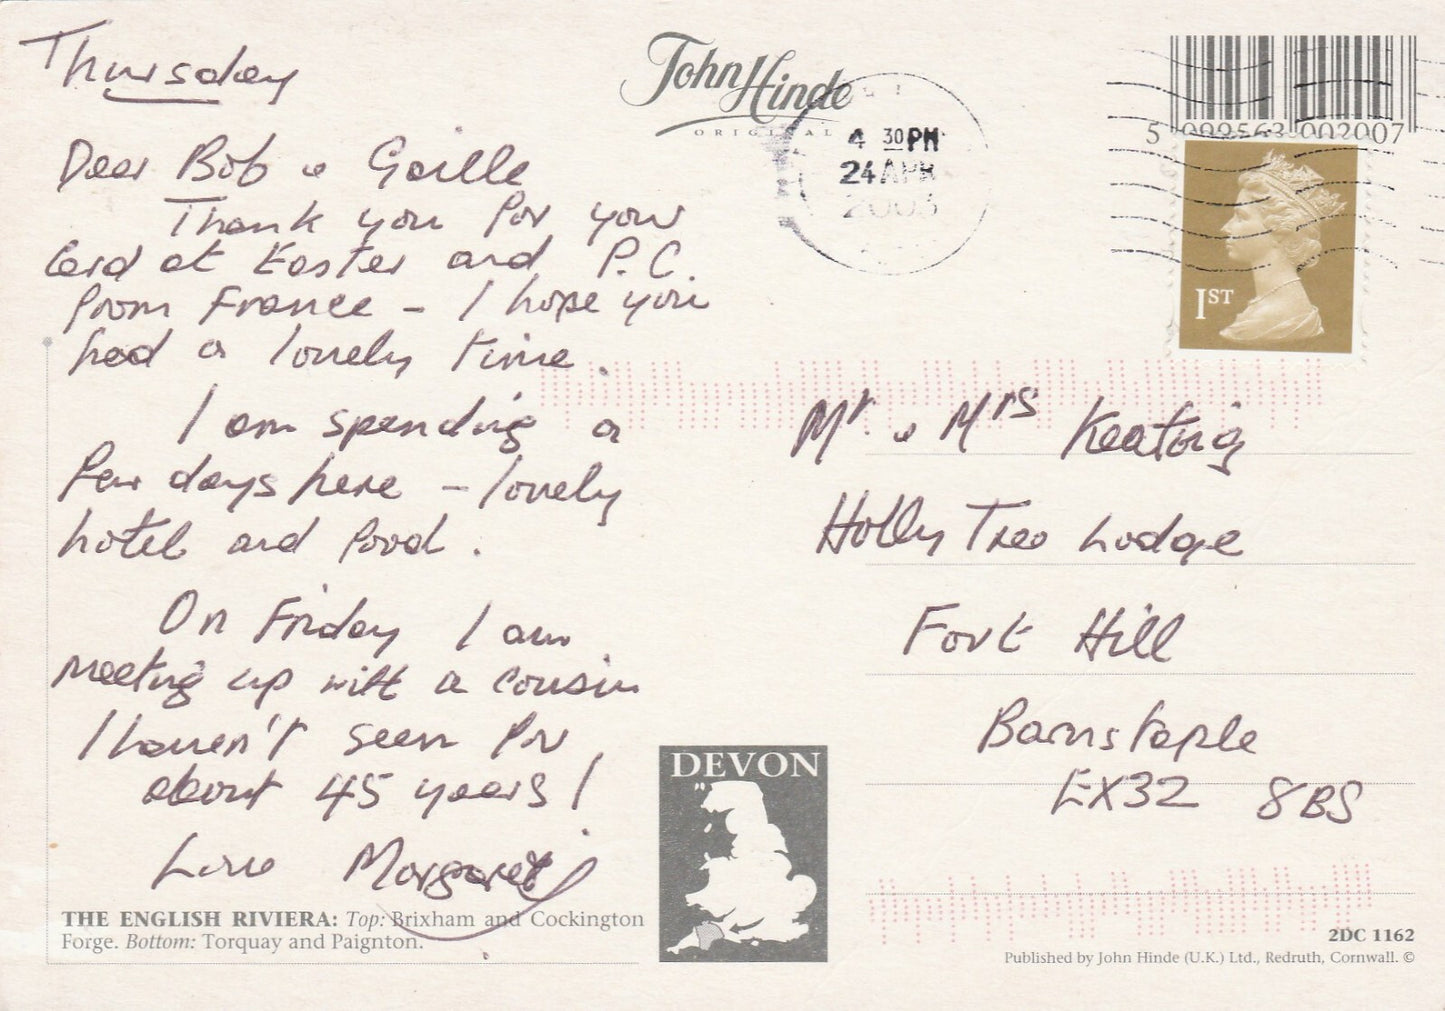 Thursday
Dear Bob & Gaille
Thank you for your
Card at Easter and P.C.
from France – I hope you
had a lovely time.
I am spending a
few days here – lovely
hotel and food.
On Friday I am
meeting up with a cousin
I haven't seen for
about 45 years!
Love Margaret
THE ENGLISH RIVIERA: Top: Brixham and Cockington
Forge. Bottom: Torquay and Paignton.
John Hinde
ORIGINAL
4 30PM
24 APR
2003
5 099563 002007
1ST
Mr. & Mrs Keating
Holly Tree Lodge
Fort Hill
Barnstaple
EX32 8BS
DEVON
2DC 1162
Published by John Hinde (U.K.) Ltd., Redruth, Cornwall. ©